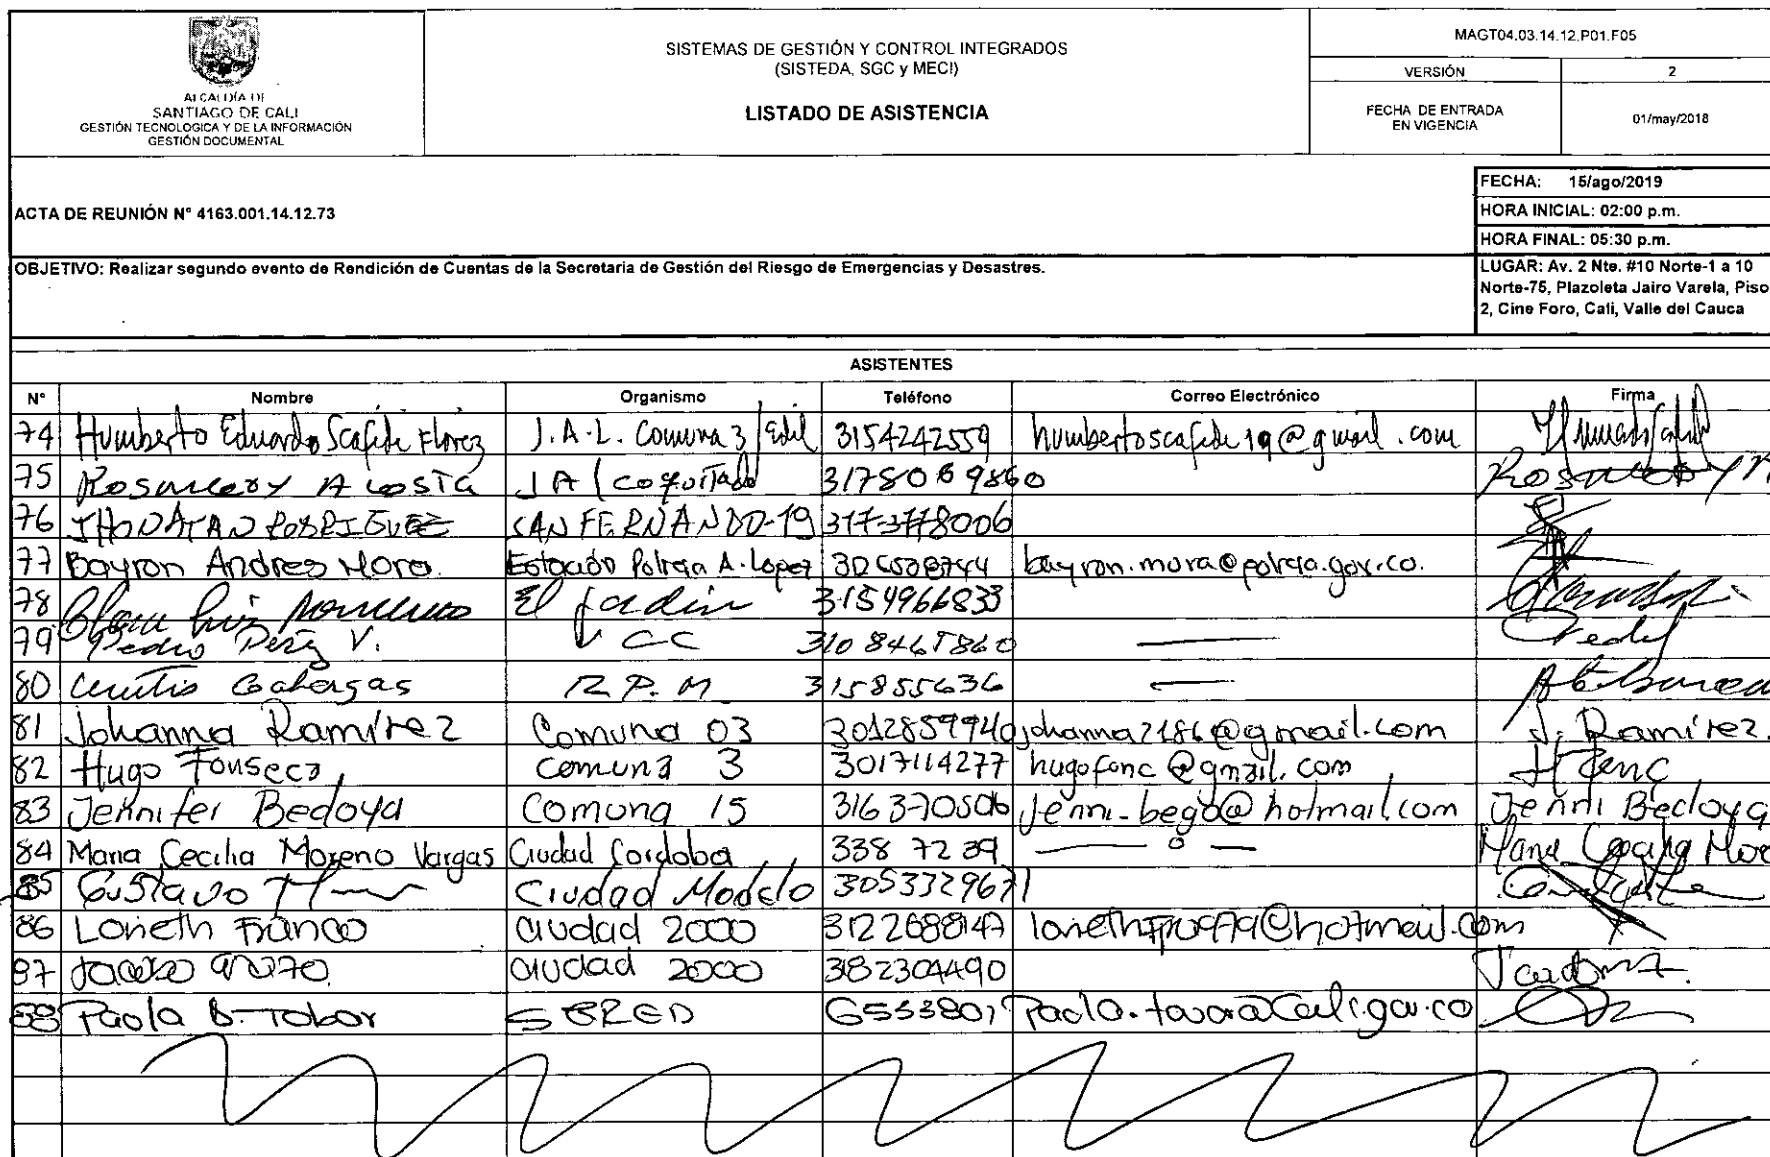 ALCALDÍA DE
SANTIAGO DE CALI
GESTIÓN TECNOLOGICA Y DE LA INFORMACIÓN
GESTIÓN DOCUMENTAL
SISTEMAS DE GESTIÓN Y CONTROL INTEGRADOS
(SISTEDA, SGC y MECI)
LISTADO DE ASISTENCIA
MAGT04.03.14.12.P01.F05
VERSIÓN 2
FECHA DE ENTRADA
EN VIGENCIA
01/may/2018
ACTA DE REUNIÓN N° 4163.001.14.12.73
FECHA: 15/ago/2019
HORA INICIAL: 02:00 p.m.
HORA FINAL: 05:30 p.m.
OBJETIVO: Realizar segundo evento de Rendición de Cuentas de la Secretaria de Gestión del Riesgo de Emergencias y Desastres.
LUGAR: Av. 2 Nte. #10 Norte-1 a 10
Norte-75, Plazoleta Jairo Varela, Piso
2, Cine Foro, Cali, Valle del Cauca
ASISTENTES
N° Nombre Organismo Teléfono Correo Electrónico Firma
74 Humberto Eduardo Scafide Florez J.A.L. Comuna 3 / Edil 3154242559 humbertoscafide19@gmail.com
75 Rosmery Acosta JA 3178069860
76 JHONATAN RODRIGUEZ SAN FERNANDO-19 317-3778006
77 Bayron Andres Mora. Estación Policia A. Lopez bayron.mora@policia.gov.co.
78 Blanca Luz El jardin 3154966833
79 Pedro Perez V. V CC 3108465860 Pedro
80 R.P.M 315855636
81 Johanna Ramírez Comuna 03 3012859940 johanna2186@gmail.com J. Ramírez.
82 Hugo Fonseca, comuna 3 3017114277 hugofonc@gmail.com H Fonc
83 Jennifer Bedoya Comuna 15 316370506 jenni-bego@hotmail.com Jenni Bedoya
84 Maria Cecilia Moreno Vargas Ciudad Cordoba 338 72 39 Maria Cecilia Mor
85 Gustavo Ciudad Modelo 3053329671
86 Lorieth Franco ciudad 2000 3122688147
87 ciudad 2000 3182304490
88 Paola B. Tobar SGRED 6553801